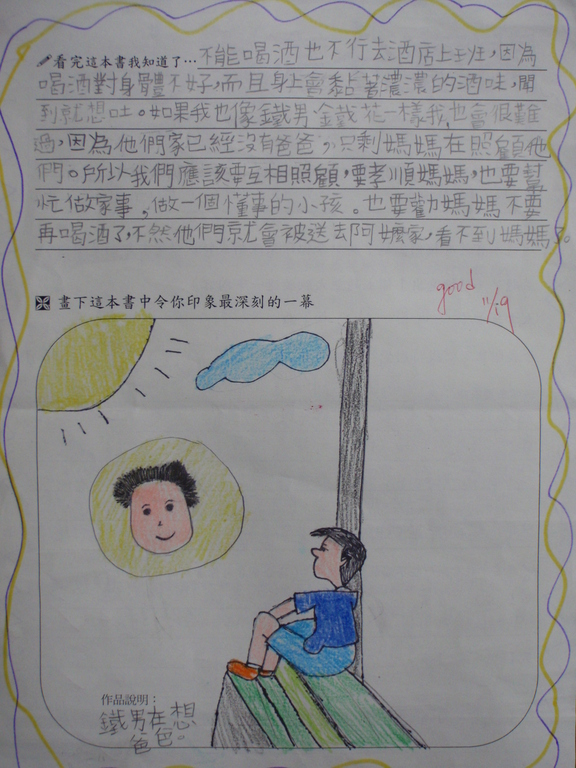 看完這本書我知道了…不能喝酒也不行去酒店上班,因為
喝酒對身體不好,而且身上會黏著濃濃的酒味,聞
到就想吐。如果我也像鐵男金鐵花一樣我也會很難
過,因為他們家已經沒有爸爸,只剩媽媽在照顧他
們。所以我們應該要互相照顧,要孝順媽媽,也要幫
忙做家事,做一個懂事的小孩。也要勸媽媽不要
再喝酒了,不然他們就會被送去阿嬤家,看不到媽媽了。
good
11/19
畫下這本書中令你印象最深刻的一幕
作品說明:
鐵男在想
爸爸。